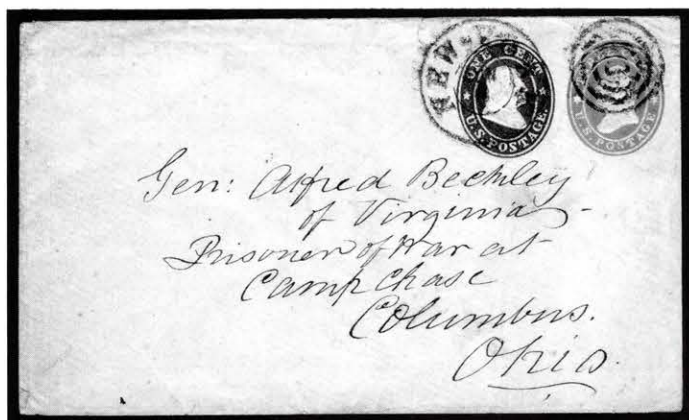 NEW
ONE CENT
U.S. POSTAGE.
U.S. POSTAGE
Gen: Alfred Beckley
of Virginia -
Prisoner of War at
Camp Chase
Columbus.
Ohio.